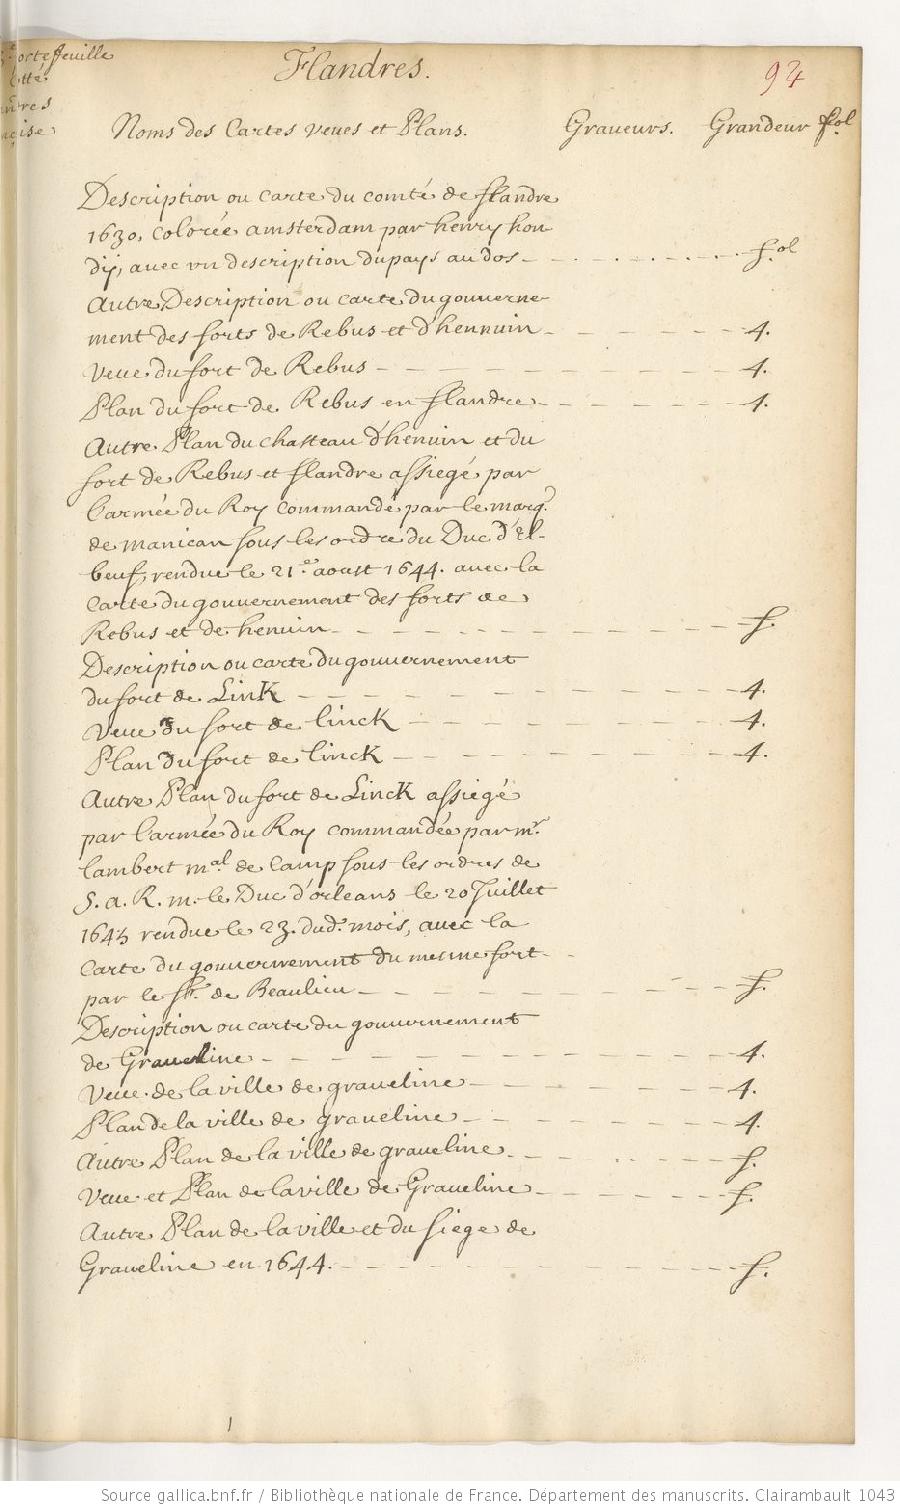 Portefeuille
Flandres.
94
Noms des Cartes veues et Plans. Graveurs. Grandeur fol
Description ou carte du comté de flandre
1630, colorée amsterdam par henry hon
dij, avec un description du pays au dos fol
Autre Description ou carte du gouverne-
ment des forts de Rebus et d'hennuin 4.
Veue du fort de Rebus 4.
Plan du fort de Rebus en flandre 4.
Autre Plan du chasteau d'henuin et du
fort de Rebus et flandre assiegé par
l'armée du Roy commandé par le marq.
de manican sous les ordre du Duc d'El-
beuf, rendue le 21e. aoust 1644. avec la
Carte du gouvernement des forts de
Rebus et de henuin f.
Description ou carte du gouvernement
du fort de Link 4.
Veue du fort de linck 4.
Plan du fort de linck 4.
Autre Plan du fort de Linck assiegé
par l'armée du Roy commandée par mr.
lambert mal. de Camp sous les ordres de
S. a. R. m. le Duc d'orleans le 20 Juillet
1645 rendue le 23. dud. mois, avec la
Carte du gouvernement du mesme fort
par le Sr. de Beaulieu f.
Description ou carte du gouvernement
de Graveline 4.
Veue de la ville de graveline 4.
Plan de la ville de graveline 4.
Autre Plan de la ville de graveline f.
Veue et Plan de la ville de Graveline f.
Autre Plan de la ville et du siege de
Graveline en 1644. f.
Source gallica.bnf.fr / Bibliothèque nationale de France. Département des manuscrits. Clairambault 1043